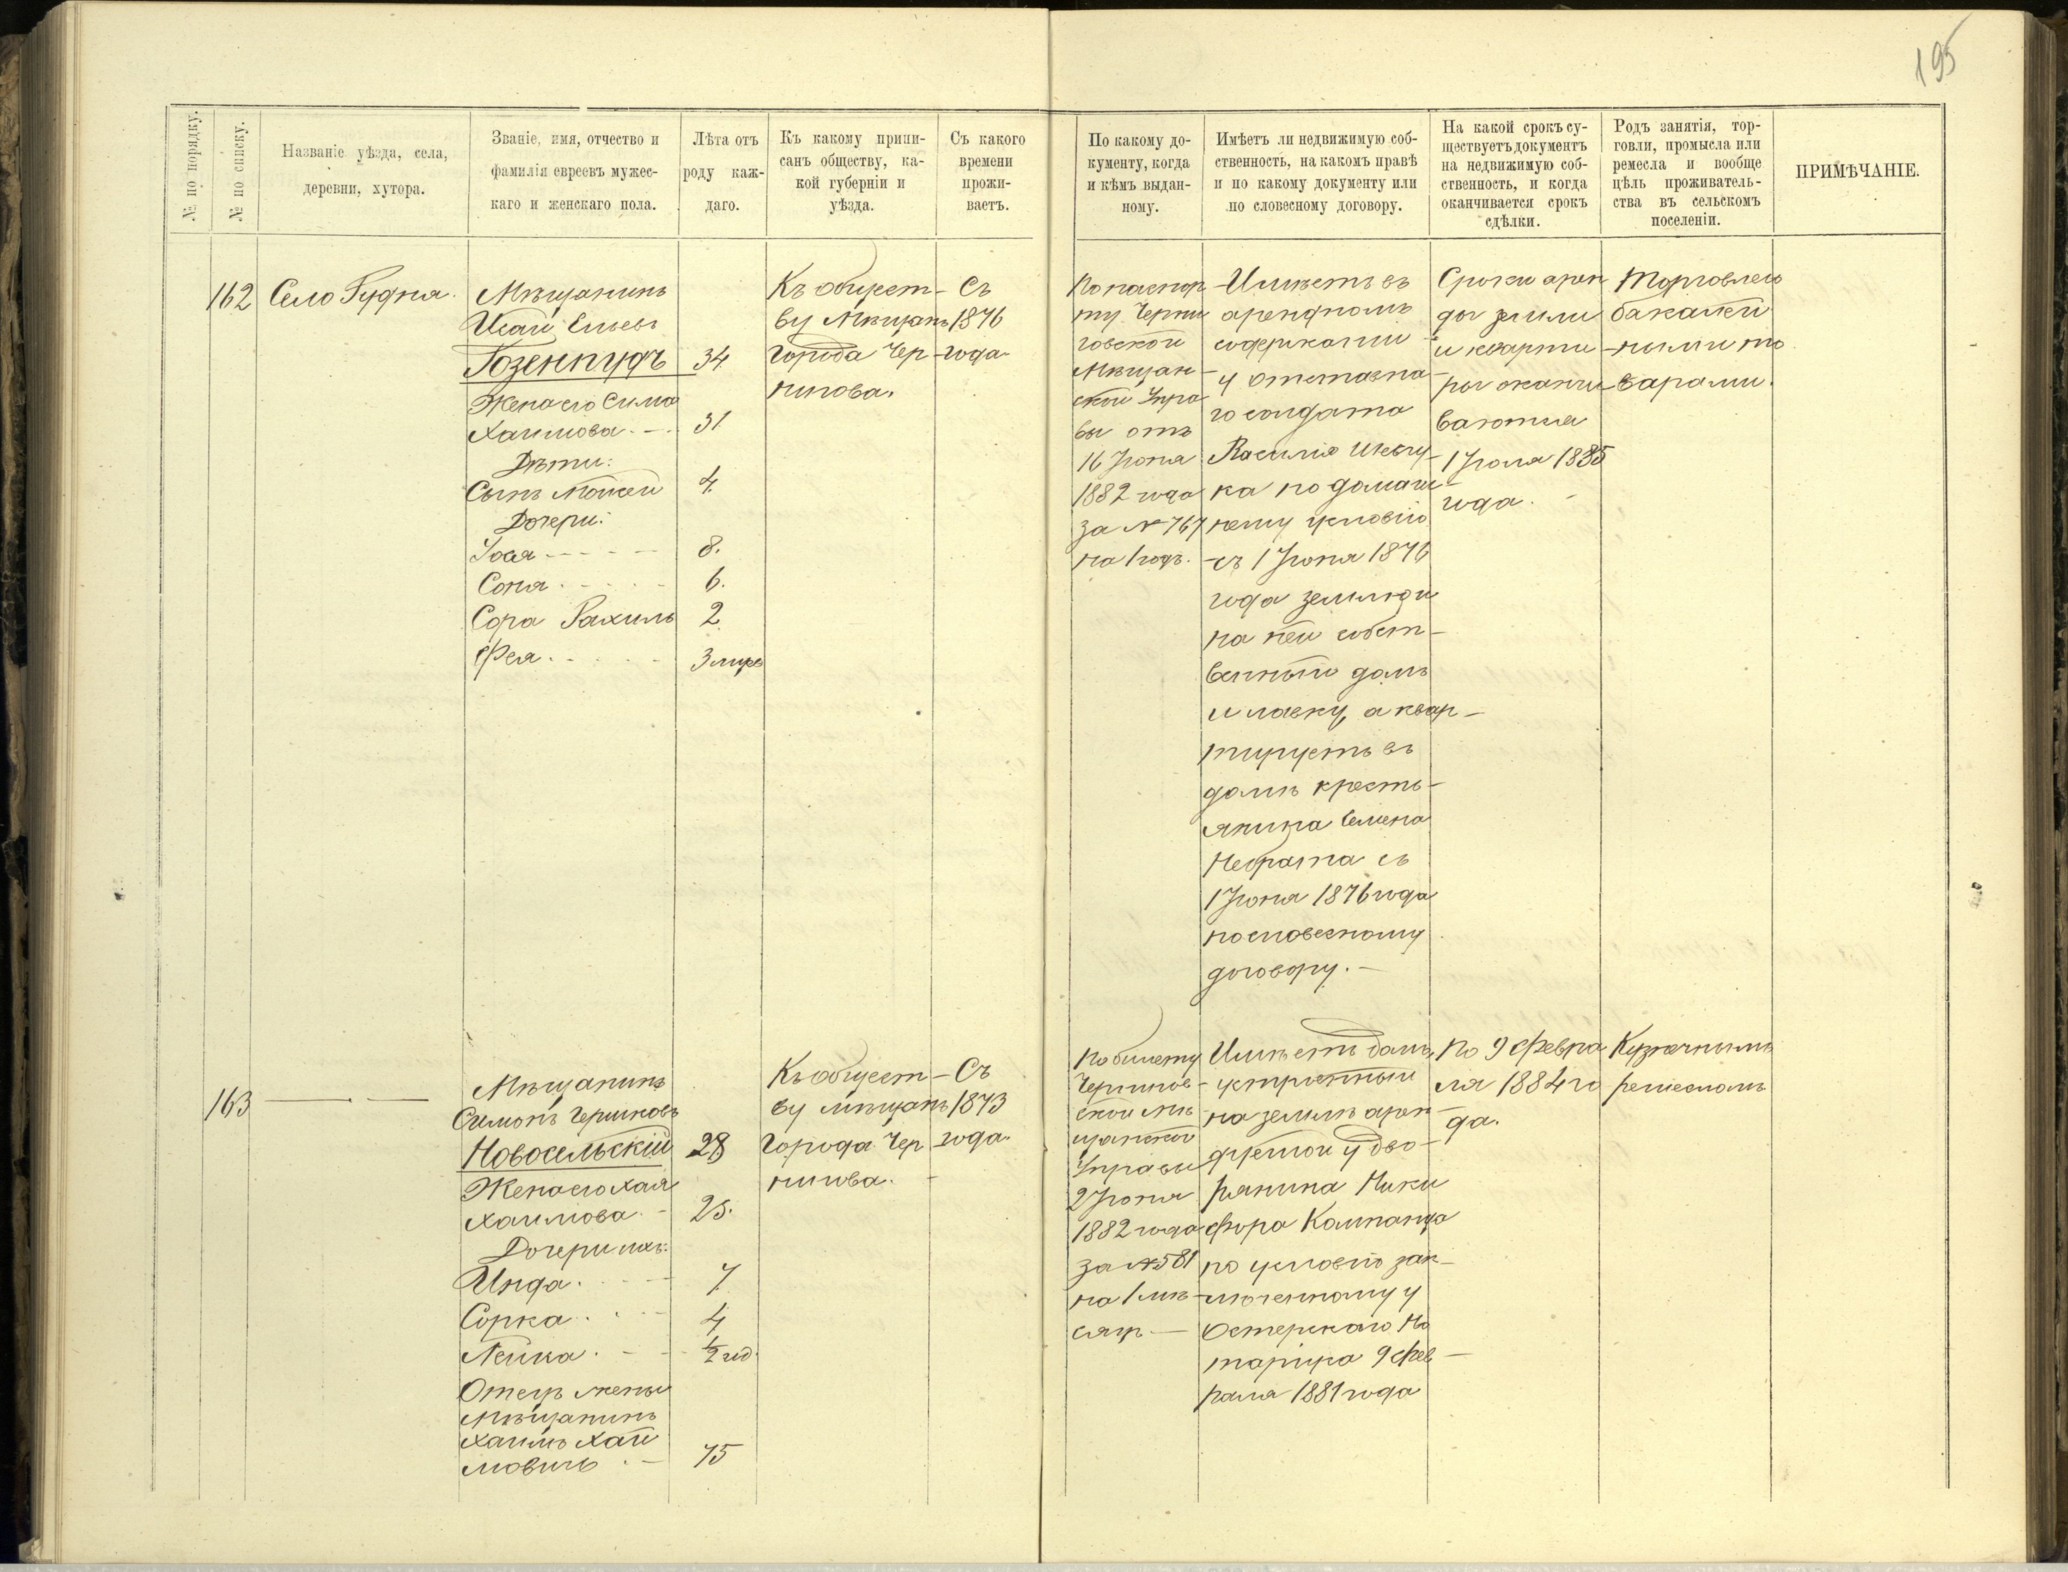 195
№ по порядку.
№ по списку.
Названіе уѣзда, села,
деревни, хутора.
Званіе, имя, отчество и
фамилія евреевъ мужес-
каго и женскаго пола.
Лѣта отъ
роду каж-
даго.
Къ какому припи-
санъ обществу, ка-
кой губерніи и
уѣзда.
Съ какого
времени
прожи-
ваетъ.
По какому до-
кументу, когда
и кѣмъ выдан-
ному.
Имѣетъ ли недвижимую соб-
ственность, на какомъ правѣ
и по какому документу или
по словесному договору.
На какой срокъ су-
ществуетъ документъ
на недвижимую соб-
ственность, и когда
оканчивается срокъ
сдѣлки.
Родъ занятія, тор-
говли, промысла или
ремесла и вообще
цѣль проживатель-
ства въ сельском
поселеніи.
ПРИМѢЧАНІЕ.
162
Село Рудня.
Мѣщанинъ
Исай Ельевъ
Розенпудъ 34
Жена его Сима
Хаимова. 31
Дѣти:
Сынъ Мойсей 4.
Дочери:
8.
Соня 6.
Сора Рахиль 2
Фея 3 мѣс
Къ общест-
ву Мѣщанъ
города Чер-
нигова.
Съ
1876
года
По паспор
ту Черни
говской
Мѣщан-
ской Упра
вы отъ
16 Іюня
1882 года
за № 767
на 1 годъ.
Имѣетъ въ
арендномъ
содержаніи
у отставна-
го солдата
Василія
ка по домаш-
нему условію
съ 1 Іюня 1876
года землю и
на ней собст-
венный домъ
и лавку, а квар-
тируетъ въ
домѣ кресть-
янина Семена
с
1 Іюня 1876 года
по словесному
договору.
Сроки арен
ды земли
и кварти
ры оканчи
ваются
1 Іюля 1885
года.
Торговлею
бакалей
ными то
варами.
163
Мѣщанинъ
Симонъ Гершковъ
Новосельскій 28
Жена его Хая
Хаимова 25.
Дочери ихъ:
Инда. 7
Сорка 4
Лейка 1/2 год.
Отецъ жены
Мѣщанинъ
Хаимъ Хай
мовичъ 75
Къ общест-
ву мѣщанъ
города Чер
нигова.
Съ
1873
года.
По билету
Чернигов-
ской мѣ
щанской
Управы
2 Іюня
1882 года
за № 581
на 1 мѣ-
сяцъ
Имѣетъ домъ,
устроенный
на землѣ арен-
дуемой у дво-
рянина Ники
фора Компанца
по условію зак-
люченному у
Остерскаго Но
таріуса 9 фев-
раля 1881 года
По 9 Февра
ля 1884 го
да.
Кузнечнымъ
ремесломъ